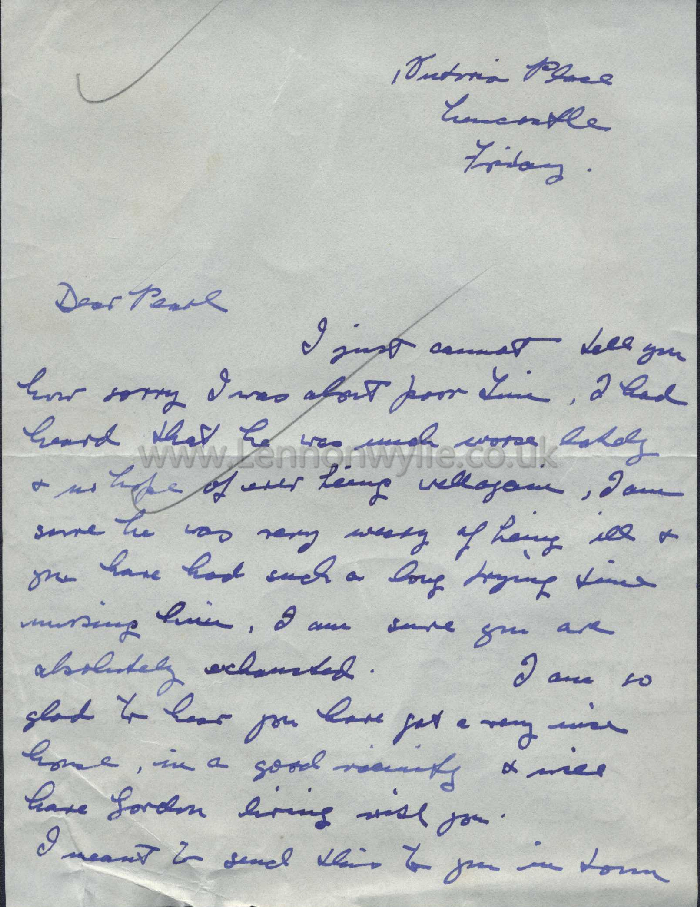 , Victoria Place
Newcastle
Friday.
Dear Pearl
I just cannot tell you
how sorry I was about poor Jim, I had
heard that he was much worse lately
www.Lennonwylie.co.uk
& no hope of ever being well again, I am
sure he was very weary of being ill &
you have had such a long trying time
nursing him, I am sure you are
absolutely exhausted. I am so
glad to hear you have got a very nice
house, in a good vicinity & will
have Gordon living with you.
I meant to send this to you in town